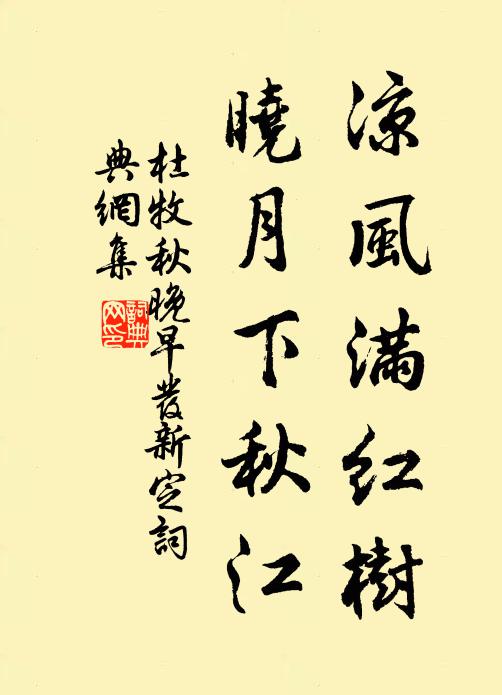 凉風满紅樹
曉月下秋江
杜牧秋晚早發新定詞
典網集
詞典
网印